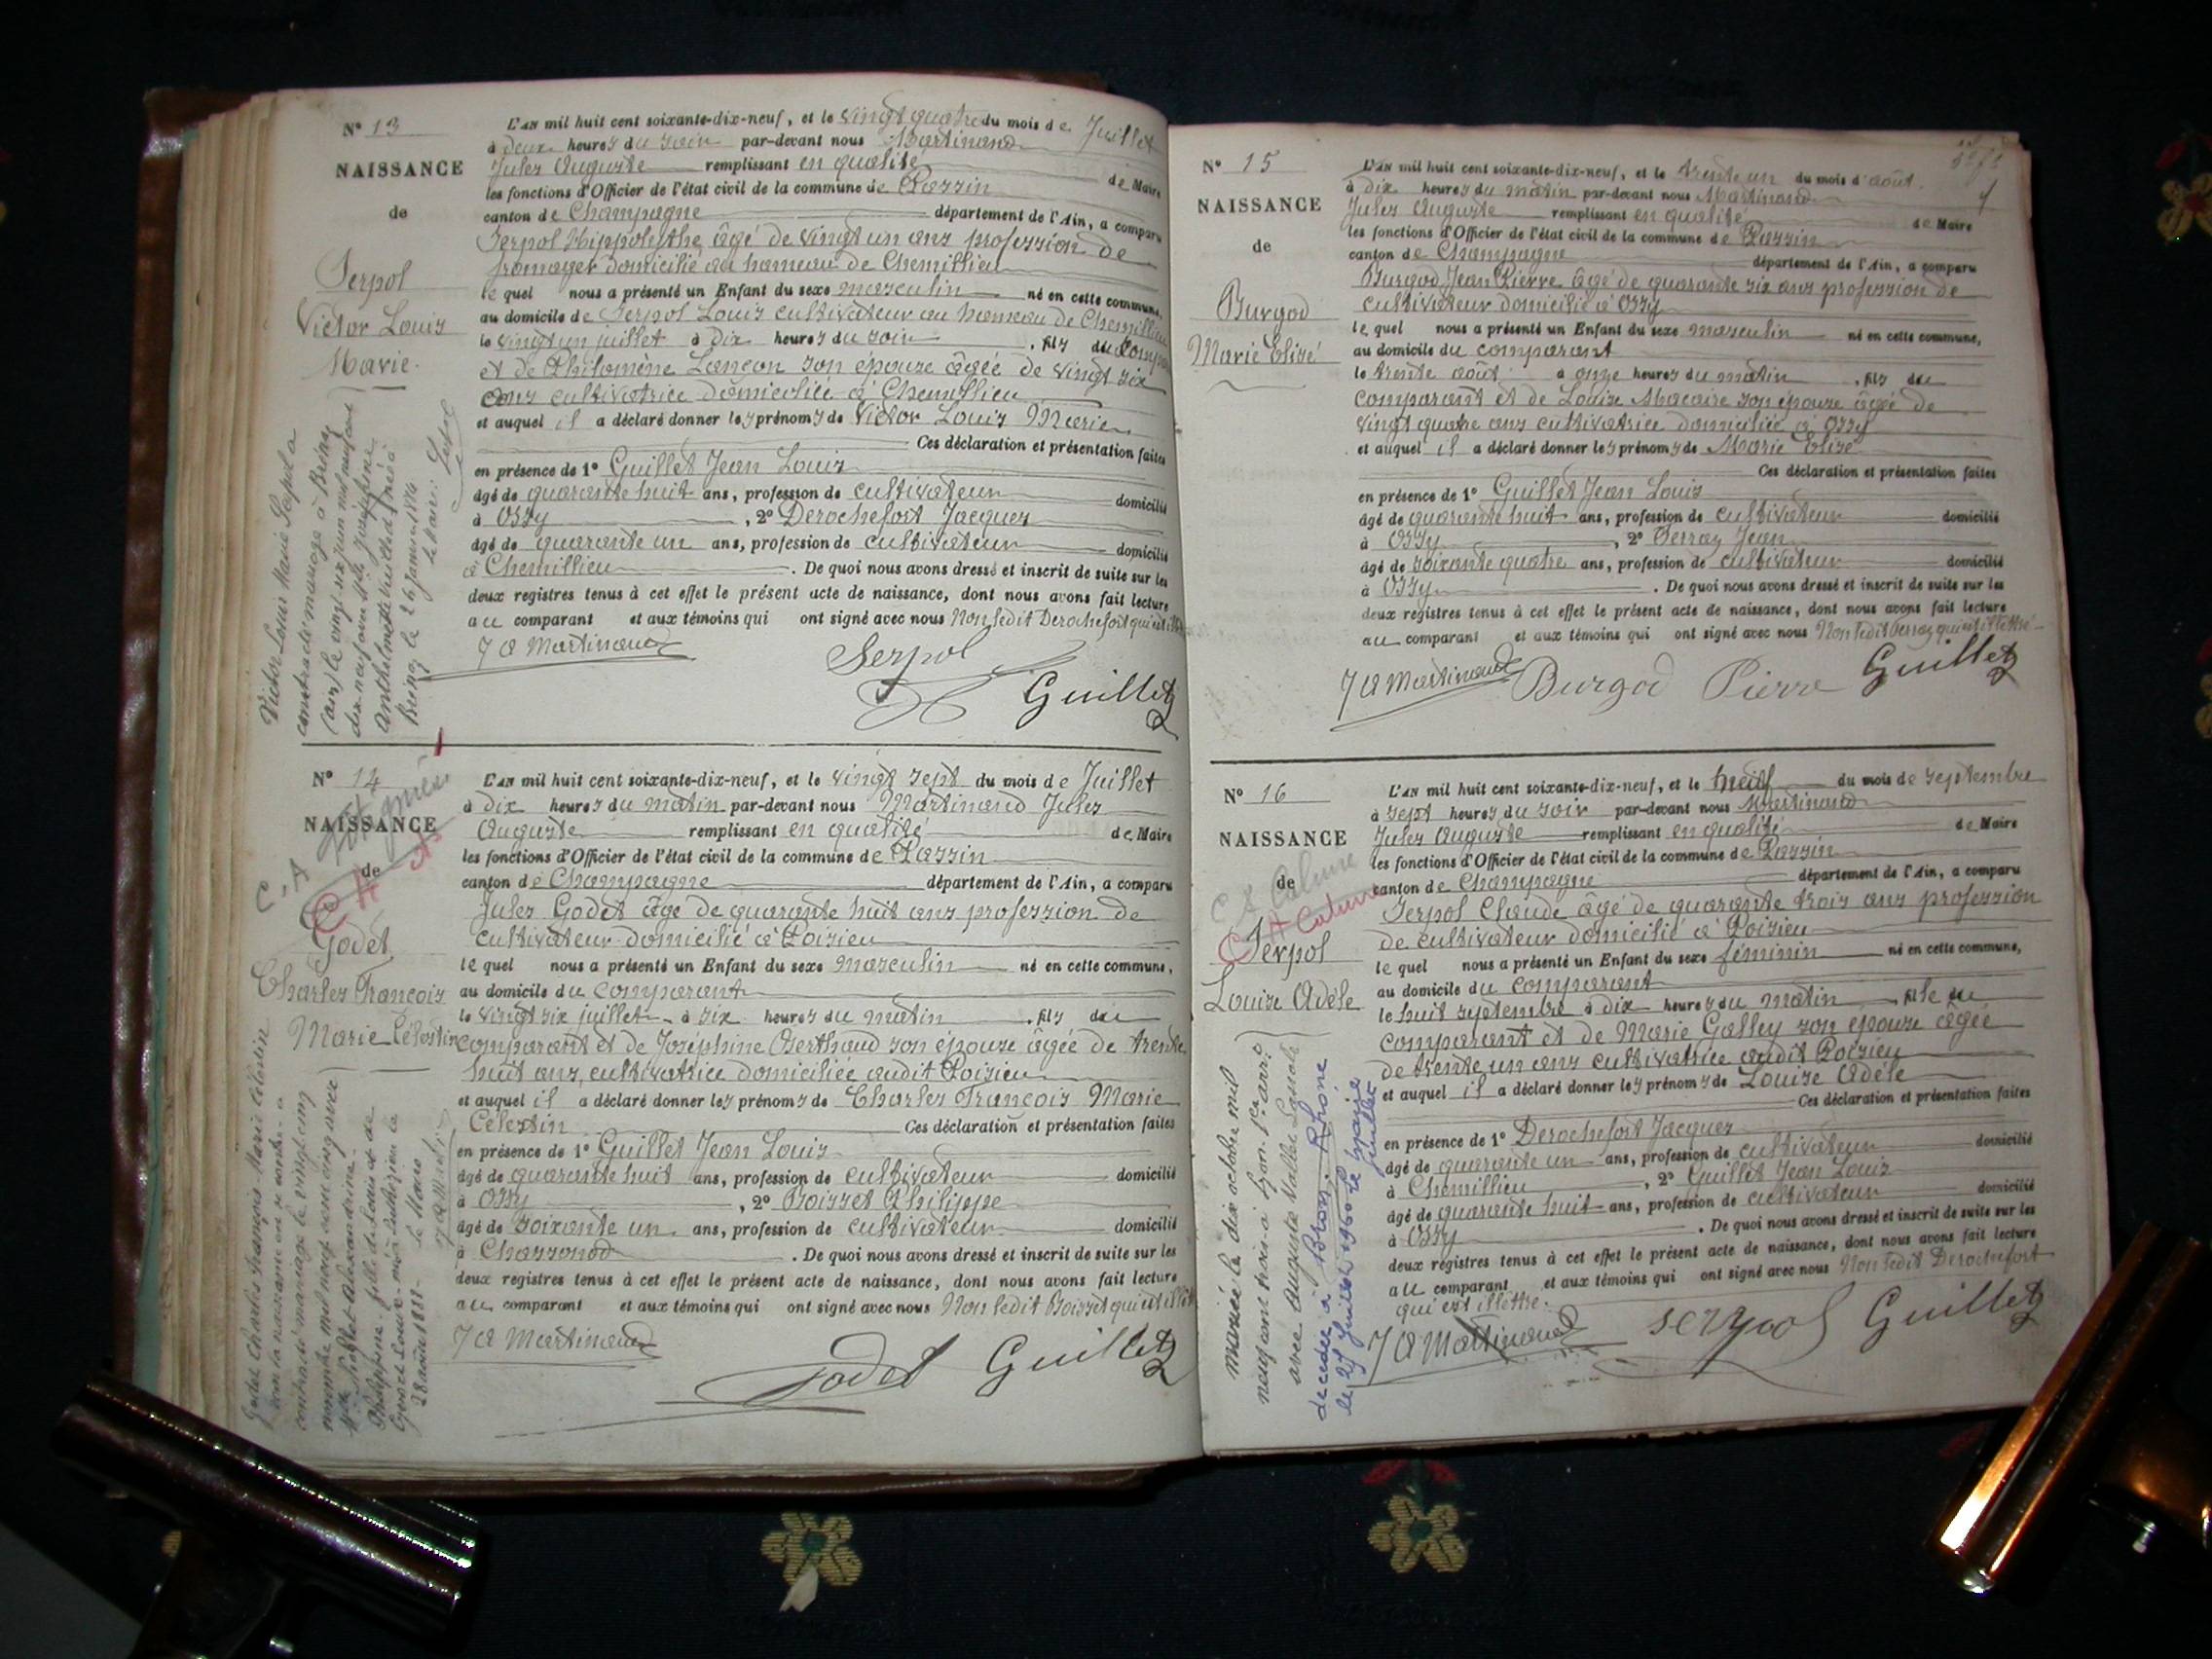 N° 13
NAISSANCE
de
Serpol
Victor Louis
Marie.
L'AN mil huit cent soixante-dix-neuf, et le vingt quatre du mois de Juillet
à deux heures du soir par-devant nous Martinand
Jules Auguste remplissant en qualité de Maire
les fonctions d'Officier de l'état civil de la commune de Parzin
canton de Champagne département de l'Ain, a comparu
Serpol Hippolythe âgé de vingt un ans profession de
fromager domicilié au hameau de Chemillieu
le quel nous a présenté un Enfant du sexe masculin né en cette commune,
au domicile de Serpol Louis cultivateur au hameau de Chemillieu
le vingt un juillet à dix heures du soir, fils du comp
et de Philomène Lançon son épouse âgée de vingt six
ans cultivatrice domiciliée à Chemillieu
et auquel il a déclaré donner les prénoms de Victor Louis Marie
Ces déclaration et présentation faites
en présence de 1° Guillet Jean Louis
âgé de quarante huit ans, profession de cultivateur domicilié
à Ossy, 2° Derochefort Jacques
âgé de quarante un ans, profession de cultivateur domicilié
à Chemillieu. De quoi nous avons dressé et inscrit de suite sur les
deux registres tenus à cet effet le présent acte de naissance, dont nous avons fait lecture
au comparant et aux témoins qui ont signé avec nous Non ledit Derochefort qui est
J A Martinand
Serpol
Guillet
Victor Louis Marie Serpol a
contracté mariage à Brénaz
(ain) le vingt-six juin mil neuf cent
dix-neuf avec Joséphine
Anthelmette
Brénaz le 26
N° 14
NAISSANCE
de
C. A
Godet
Charles François
Marie Célestin
L'AN mil huit cent soixante-dix-neuf, et le vingt sept du mois de Juillet
à dix heures du matin par-devant nous Martinand Jules
Auguste remplissant en qualité de Maire
les fonctions d'Officier de l'état civil de la commune de Parzin
canton de Champagne département de l'Ain, a comparu
Jules Godet âgé de quarante huit ans profession de
cultivateur domicilié à Poisieu
le quel nous a présenté un Enfant du sexe masculin né en cette commune,
au domicile du comparant
le vingt six juillet à six heures du matin, fils du
comparant et de Joséphine Berthaud son épouse âgée de trente
huit ans, cultivatrice domiciliée audit Poisieu
et auquel il a déclaré donner les prénoms de Charles François Marie
Célestin Ces déclaration et présentation faites
en présence de 1° Guillet Jean Louis
âgé de quarante huit ans, profession de cultivateur domicilié
à Ossy, 2° Boisset Philippe
âgé de soixante un ans, profession de cultivateur domicilié
à Chassonod. De quoi nous avons dressé et inscrit de suite sur les
deux registres tenus à cet effet le présent acte de naissance, dont nous avons fait lecture
au comparant et aux témoins qui ont signé avec nous Non ledit Boisset qui est
J A Martinand
Godet
Guillet
Godet Charles François Marie Célestin
dont la naissance est ci-contre a
contracté mariage le vingt cinq
novembre mil neuf cent cinq avec
Alexandrine
Philippine fille de Louis et de
N° 15
NAISSANCE
de
Burgod
Marie Elisé
L'AN mil huit cent soixante-dix-neuf, et le trente un du mois d'août
à dix heures du matin par-devant nous Martinand
Jules Auguste remplissant en qualité de Maire
les fonctions d'Officier de l'état civil de la commune de Parzin
canton de Champagne département de l'Ain, a comparu
Burgod Jean Pierre âgé de quarante six ans profession de
cultivateur domicilié à Ossy
le quel nous a présenté un Enfant du sexe masculin né en cette commune,
au domicile du comparant
le trente août à onze heures du matin, fils du
comparant et de Louise Macaire son épouse âgé de
vingt quatre ans cultivatrice domiciliée à Ossy
et auquel il a déclaré donner les prénoms de Marie Elisé
Ces déclaration et présentation faites
en présence de 1° Guillet Jean Louis
âgé de quarante huit ans, profession de cultivateur domicilié
à Ossy, 2° Jean
âgé de soixante quatre ans, profession de cultivateur domicilié
à Ossy. De quoi nous avons dressé et inscrit de suite sur les
deux registres tenus à cet effet le présent acte de naissance, dont nous avons fait lecture
au comparant et aux témoins qui ont signé avec nous Non ledit qui est illettré
J A Martinand
Burgod Pierre
Guillet
N° 16
NAISSANCE
de
Serpol
Louise Adèle
L'AN mil huit cent soixante-dix-neuf, et le neuf du mois de septembre
à sept heures du soir par-devant nous Martinand
Jules Auguste remplissant en qualité de Maire
les fonctions d'Officier de l'état civil de la commune de Parzin
canton de Champagne département de l'Ain, a comparu
Serpol Claude âgé de quarante trois ans profession
de cultivateur domicilié à Poisieu
le quel nous a présenté un Enfant du sexe féminin né en cette commune,
au domicile du comparant
le huit septembre à dix heures du matin, fille du
comparant et de Marie Galley son épouse âgée
de trente un ans cultivatrice audit Poisieu
et auquel il a déclaré donner les prénoms de Louise Adèle
Ces déclaration et présentation faites
en présence de 1° Derochefort Jacques
âgé de quarante un ans, profession de cultivateur domicilié
à Chemillieu, 2° Guillet Jean Louis
âgé de quarante huit ans, profession de cultivateur domicilié
à Ossy. De quoi nous avons dressé et inscrit de suite sur les
deux registres tenus à cet effet le présent acte de naissance, dont nous avons fait lecture
au comparant et aux témoins qui ont signé avec nous Non ledit Derochefort
qui est illettré.
J A Martinand
serpol
Guillet
mariée le dix octobre mil
neuf cent trois à Lyon 1er arr.
avec Auguste
décédée à Bron, Rhône
le 25 Juillet 1960